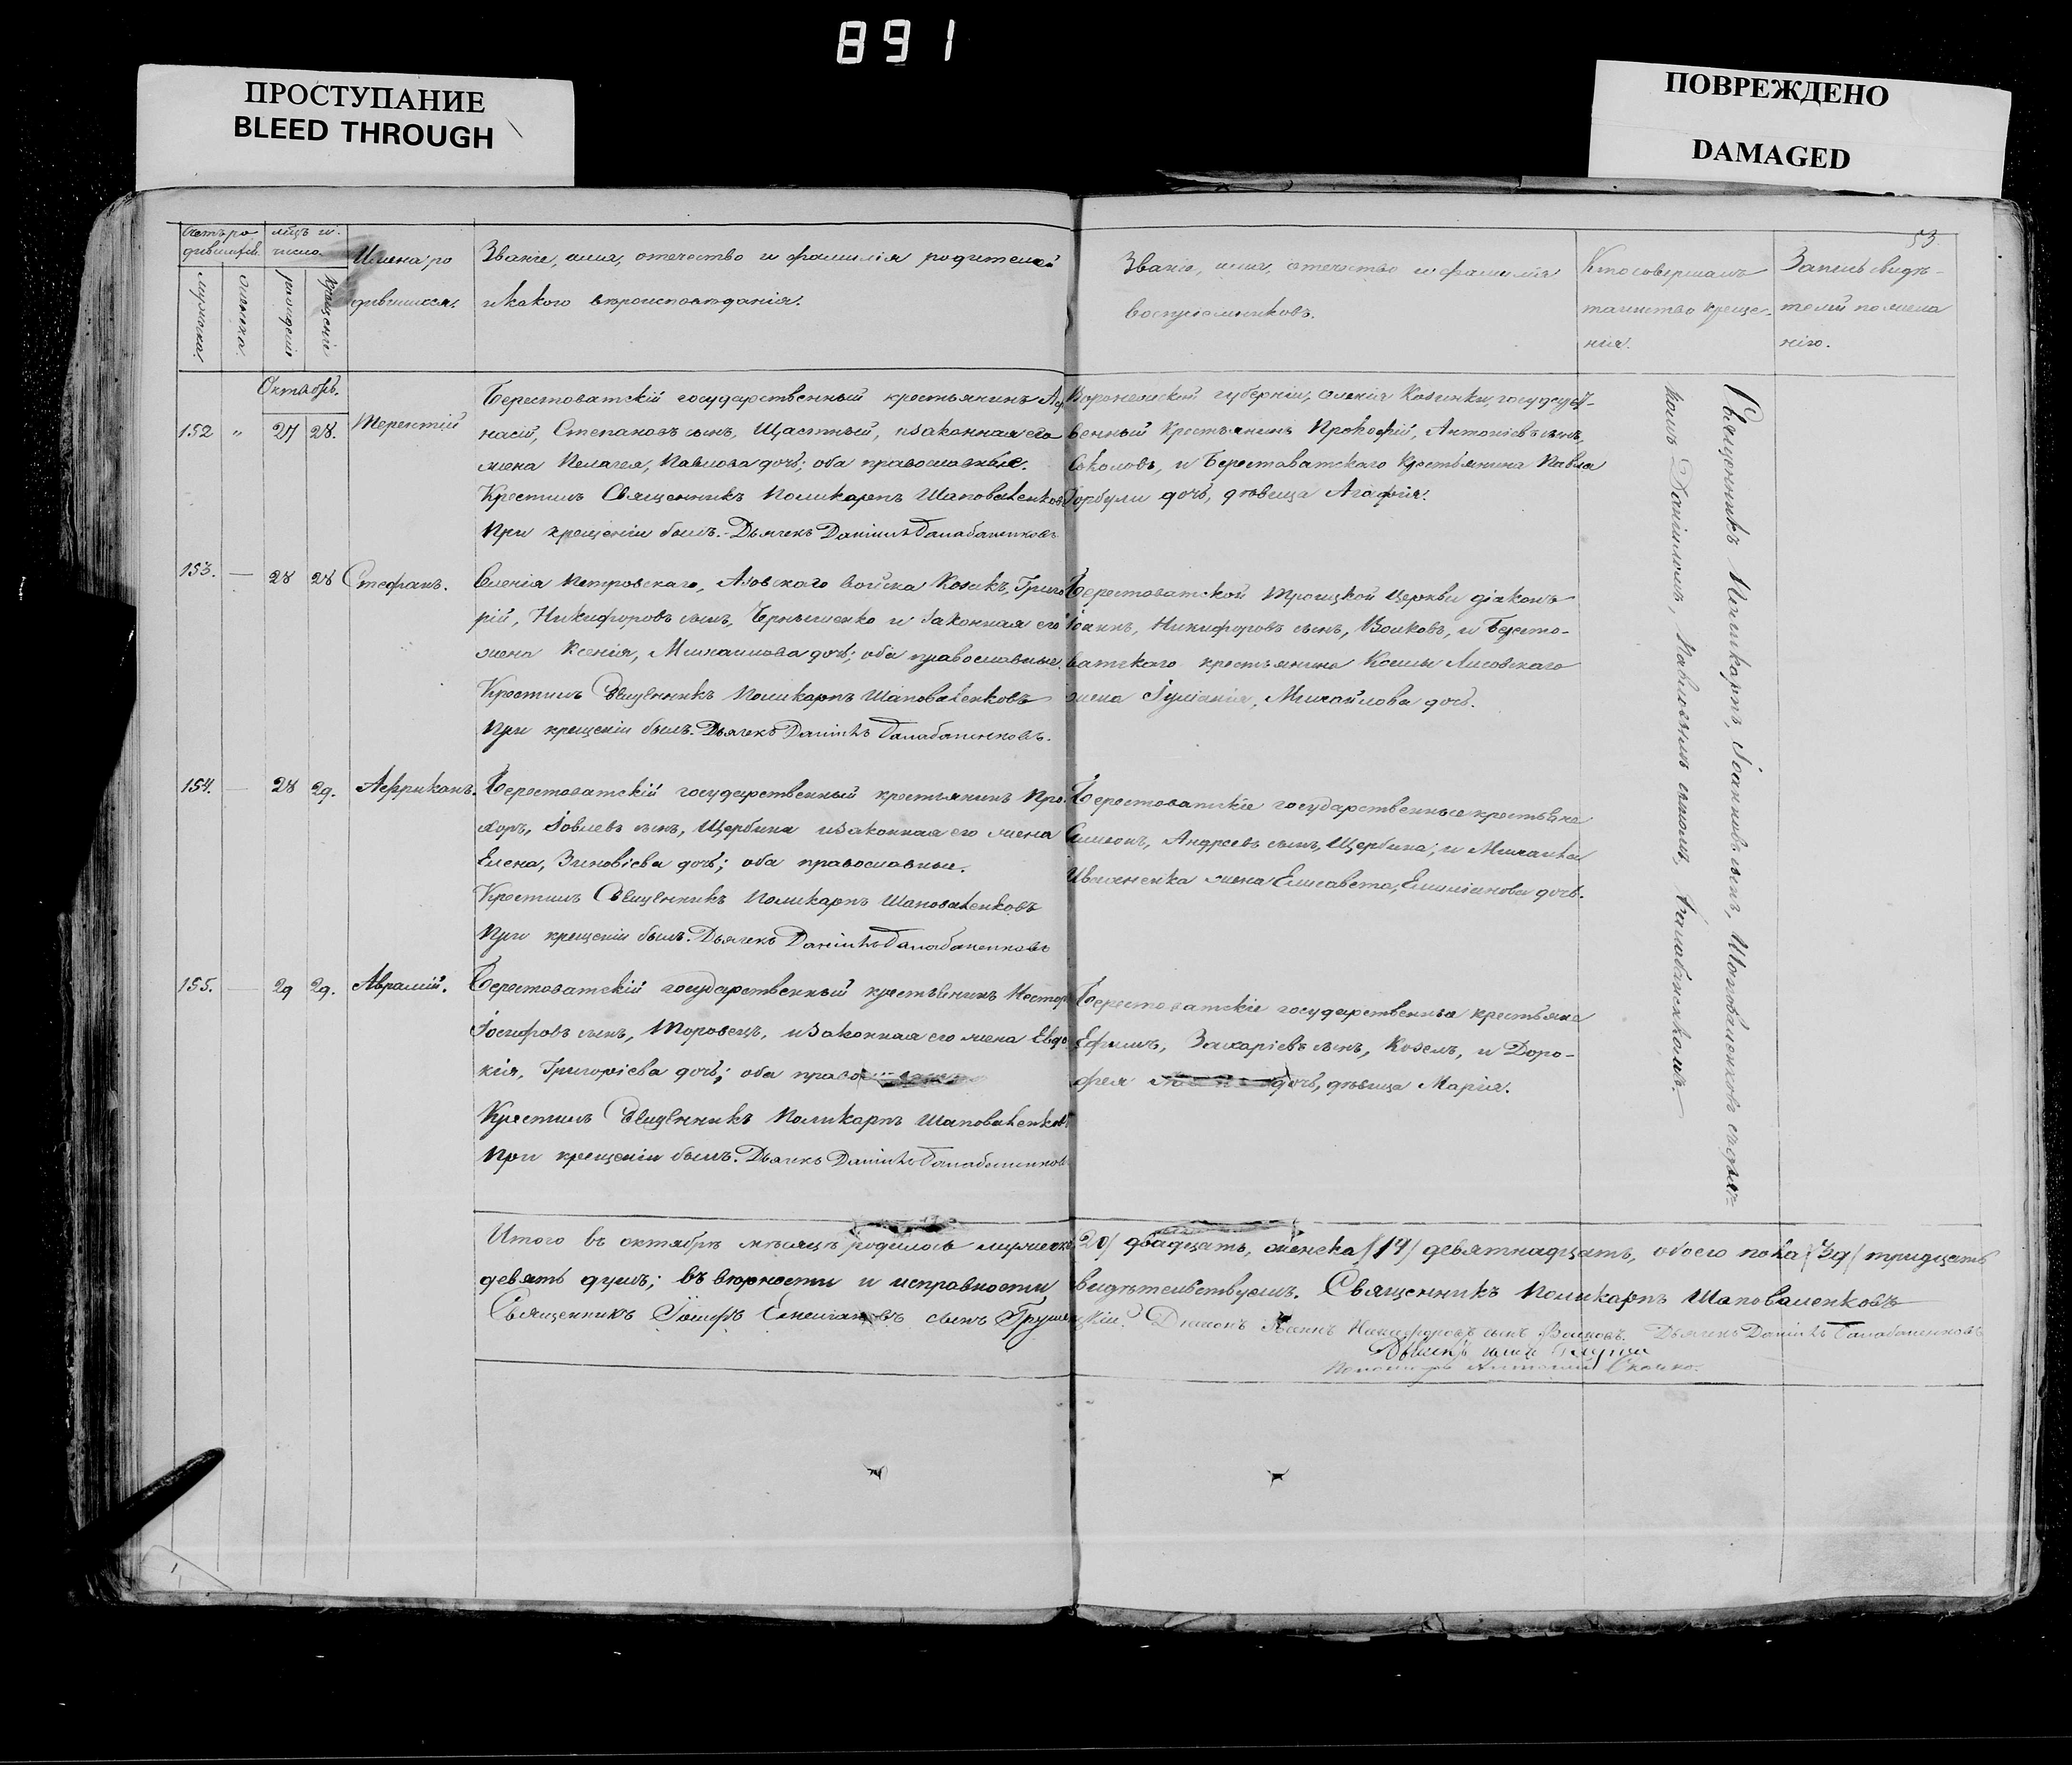 891
ПРОСТУПАНИЕ
BLEED THROUGH
ПОВРЕЖДЕНО
DAMAGED
53
Счетъ ро
дившихся.
мѣсяцъ и
число.
мужеска.
женска.
рожденія
крещенія
Имена ро
дившихся.
Званіе, имя, отечество и фамилія родителей
и какого вѣроисповѣданія.
Званіе, имя, отечество и фамилія
воспріемниковъ.
Кто совершалъ
таинство креще-
нія.
Запись свидѣ-
телей по жела
нію.
Октябрь.
152 " 27 28. Терентій
Берестоватскій государственный крестьянинъ Афа
насій, Степановъ сынъ, Щастный, и законная его
жена Пелагея, Павлова дочь; оба православные.
Крестилъ Священникъ Поликарпъ Шаповаленковъ
При крещеніи былъ. Дьячекъ Даніилъ Балабаненковъ
Воронежской губерніи, селенія Козинки, государст-
венный крестьянинъ Прокофій, Антоніевъ сынъ,
Соколовъ, и Берестоватскаго крестьянина Павла
Горбули дочь, дѣвица Агафія.
153. — 28 28 Стефанъ.
Селенія Петровскаго, Азовскаго войска Козакъ, Григо
рій, Никифоровъ сынъ, Чернышенко и законная его
жена Ксенія, Михаилова дочь; оба православные.
Крестилъ Священникъ Поликарпъ Шаповаленковъ
При крещеніи былъ. Дьячекъ Даніилъ Балабаненковъ.
Берестоватской Троицкой Церкви діаконъ
Іоаннъ, Никифоровъ сынъ, Волковъ, и Бересто-
ватскаго крестьянина Космы Лисовскаго
жена Іуліанія, Михайлова дочь.
154. — 28 29. Аффриканъ.
Берестоватскій государственный крестьянинъ Про
хоръ, Іовлевъ сынъ, Щербина и законная его жена
Елена, Зиновіева дочь; оба православные.
Крестилъ Священникъ Поликарпъ Шаповаленковъ
При крещеніи былъ. Дьячекъ Даніилъ Балабаненковъ
Берестоватскіе государственные крестьяне
Симеонъ, Андреевъ сынъ, Щербина, и Михаила
жена Елисавета, Емиліанова дочь.
155. — 29 29. Аврамій.
Берестоватскій государственный крестьянинъ Несторъ
Іосифовъ сынъ, Торовецъ, и законная его жена Евдо
кія, Григоріева дочь; оба право
Крестилъ Священникъ Поликарпъ Шаповаленковъ
При крещеніи былъ. Дьячекъ Даніилъ Балабаненковъ
Берестоватскіе государственные крестьяне
Ефимъ, Захаріевъ сынъ, Козелъ, и Доро-
фея дочь, дѣвица Марія.
Священникъ Поликарпъ, Іоанновъ сынъ, Шаповаленковъ съ дьяч-
комъ Даніиломъ, Павловымъ сыномъ, Балабаненковымъ.
Итого въ октябрѣ мѣсяцѣ родилось мужеска /20/ двадцать, женска /19/ девятнадцать, обоего пола /39/ тридцать
девять душъ; въ вѣрности и исправности свидѣтельствуемъ. Священникъ Поликарпъ Шаповаленковъ
Священникъ Іосифъ сынъ Діаконъ Іоаннъ Никифоровъ сынъ Волковъ. Дьячекъ Даніилъ Балабаненковъ
Пономарь Антоній